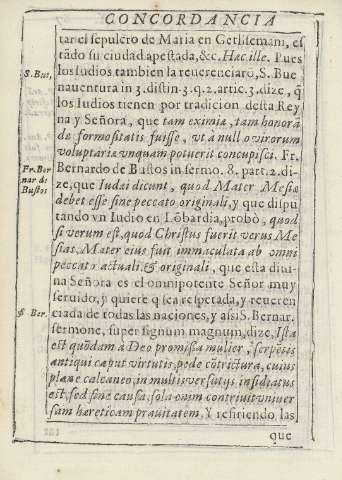 CONCORDANCIA
tar el sepulcro de Maria en Gethsemani, es
tãdo su ciudad apestada, &c. Hac ille. Pues
S. Bue, los Iudios tambien la reuerenciarõ, S. Bue
nauentura in 3. distin. 3. q. 2. artic. 3. dize, q̃
los Iudios tienen por tradicion desta Rey
na y Señora, que tam eximiæ, tam honorã
dæ formositatis fuisse, vt à nullo virorum
voluptariæ vnquam potuerit concupisci. Fr.
Fr. Ber
nar. de
Bustos
Bernardo de Bustos in sermo. 8. part. 2. di-
ze, que Iudæi dicunt, quod Mater Mesiæ
debet esse sine peccato originali, y que dispu
tando vn Iudio en Lõbardia, probò, quod
si verum est, quod Christus fuerit verus Me
sias, Mater eius fuit immaculata ab omni
peccato actuali, & originali, que esta diui-
na Señora es el omnipotente Señor muy
seruido, y quiere q̃ sea respetada, y reueren
S. Ber. ciada de todas las naciones, y assi S. Bernar.
sermone, super signum magnum, dize, Ista
est quõdam à Deo promissa mulier, serpẽtis
antiqui caput virtutis, pede cõtrictura, cuius
planè calcaneo, in multis versutijs insidiatus
est, sed sine causa, sola enim contriuit vniuer
sam hæreticam prauitatem. Y refiriendo las
que